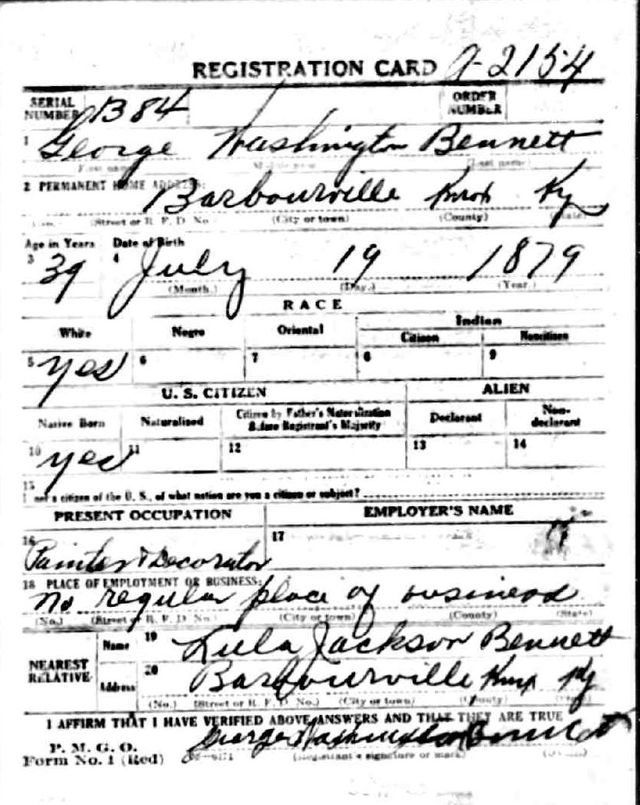 REGISTRATION CARD A-2154
SERIAL NUMBER 1384 ORDER NUMBER
1 George Washington Bennett
(First name) (Middle name) (Last name)
2 PERMANENT HOME ADDRESS:
Barbourville Knox Ky
(No.) (Street or R. F. D. No.) (City or town) (County) (State)
Age in Years Date of Birth
3 39 4 July 19 1879
(Month.) (Day.) (Year.)
RACE
White Negro Oriental Indian
Citizen Noncitizen
5 yes 6 7 8 9
U. S. CITIZEN ALIEN
Native Born Naturalized Citizen by Father's Naturalization Before Registrant's Majority Declarant Non-declarant
10 yes 11 12 13 14
15
If not a citizen of the U. S., of what nation are you a citizen or subject?
PRESENT OCCUPATION EMPLOYER'S NAME
16 17
Painter & Decorator
18 PLACE OF EMPLOYMENT OR BUSINESS:
No regular place of business
(No.) (Street or R. F. D. No.) (City or town) (County) (State)
NEAREST RELATIVE Name 19 Lula Jackson Bennett
Address 20 Barbourville Knox Ky
(No.) (Street or R. F. D. No.) (City or town) (County) (State)
I AFFIRM THAT I HAVE VERIFIED ABOVE ANSWERS AND THAT THEY ARE TRUE
P. M. G. O.
Form No. 1 (Red) George Washington Bennett
(Registrant's signature or mark) (OVER)